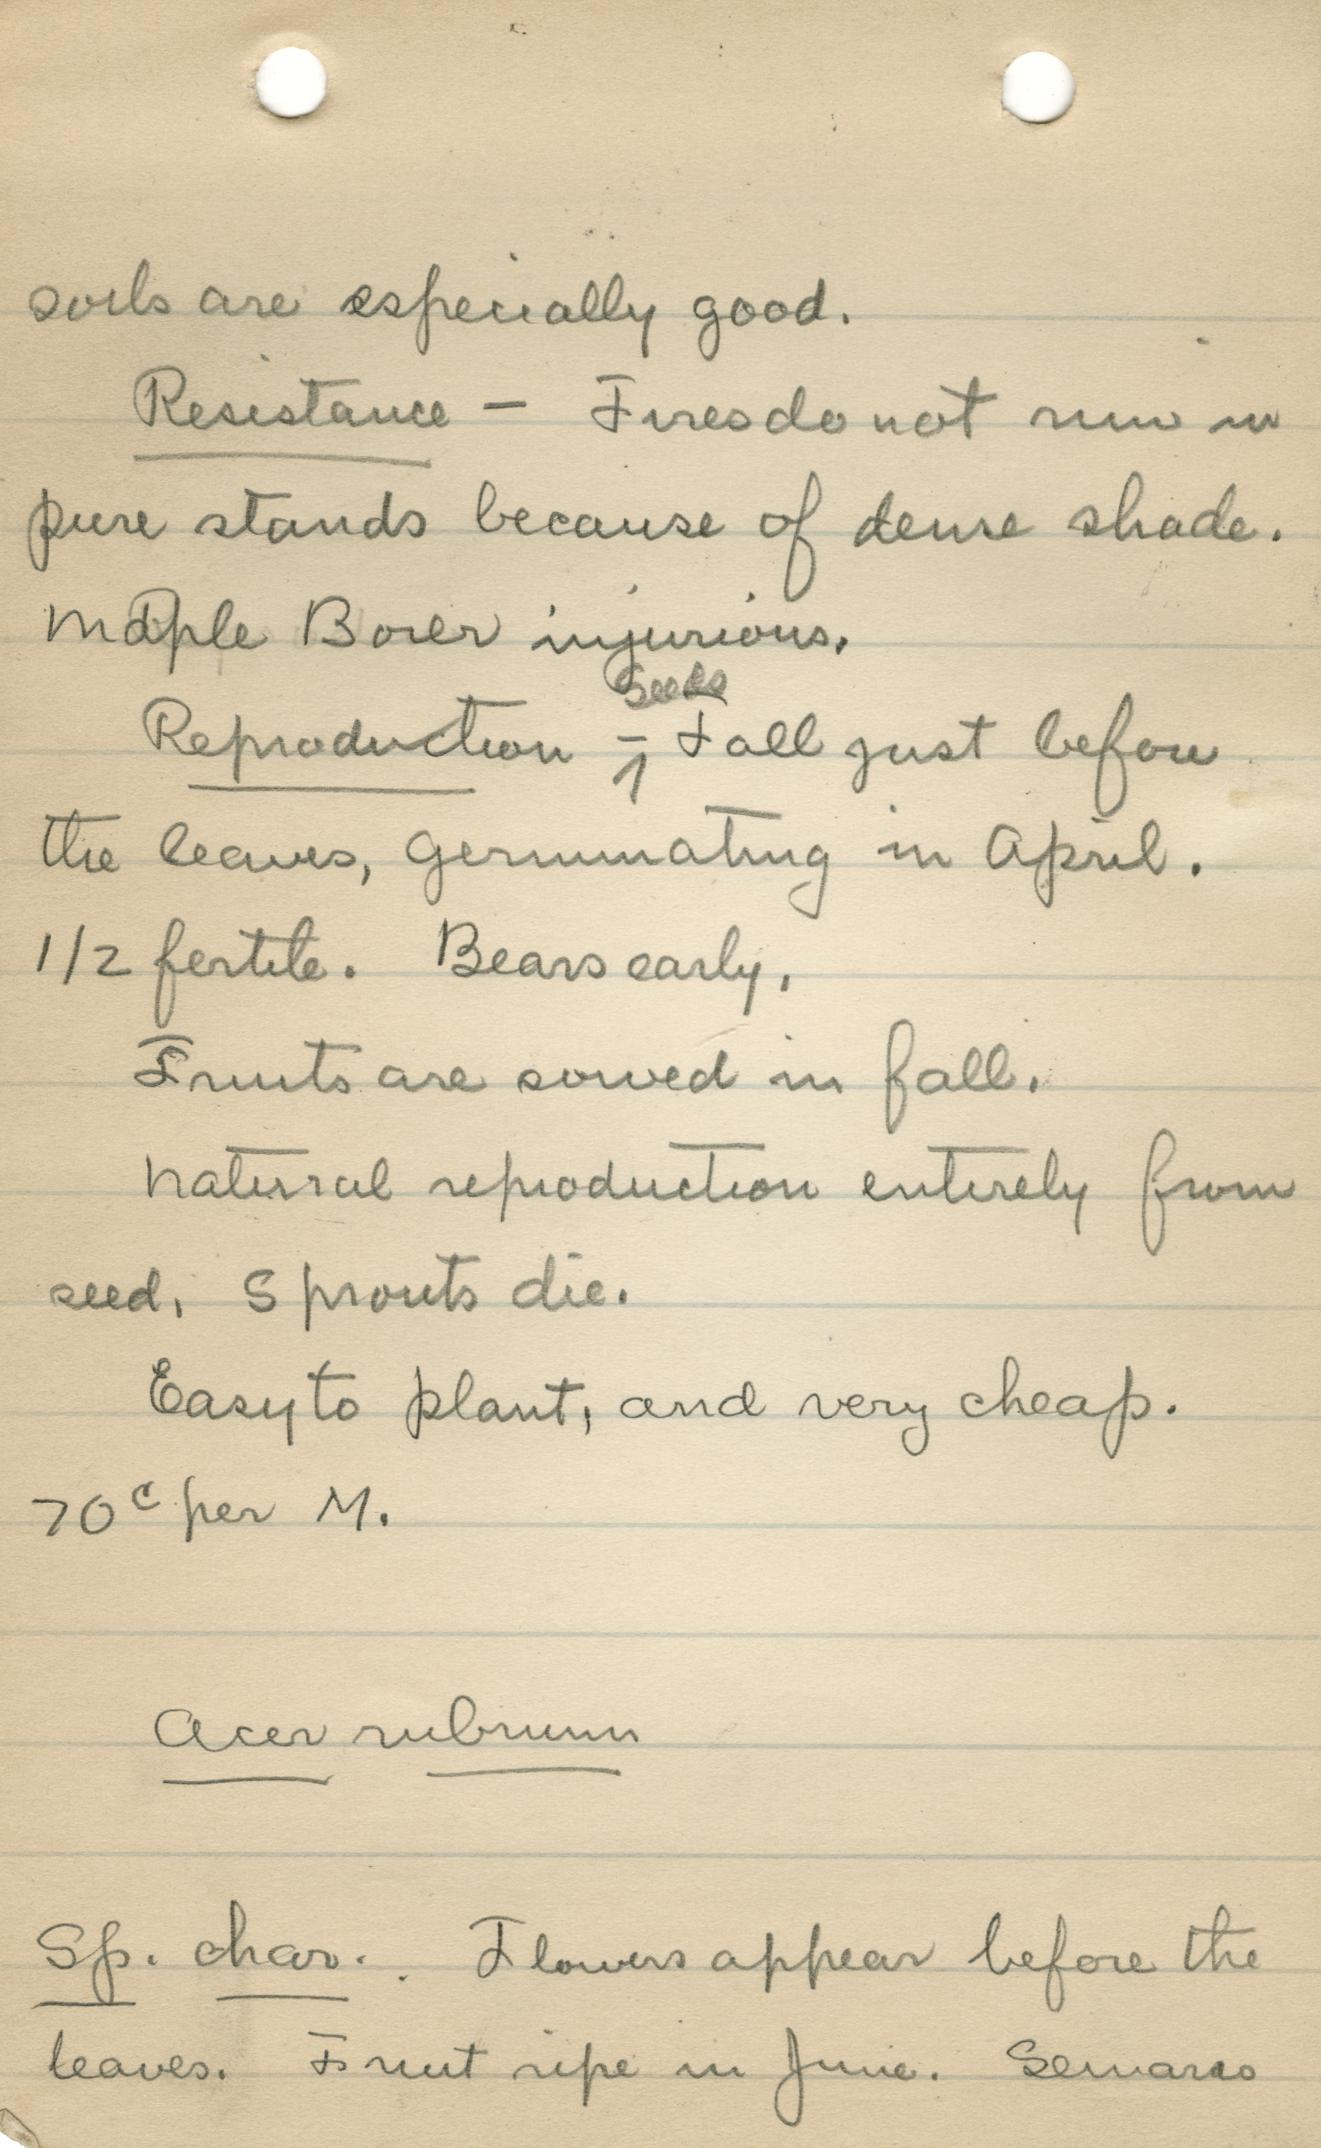 soils are especially good.
Resistance – Fires do not run in
pure stands because of dense shade.
Maple Borer injurious.
Seeds
Reproduction – Fall just before
the leaves, germinating in April.
1/2 fertile. Bears early.
Fruits are sowed in fall.
Natural reproduction entirely from
seed. Sprouts die.
Easy to plant, and very cheap.
70c per M.
Acer rubrum
Sp. char. Flowers appear before the
leaves. Fruit ripe in June.